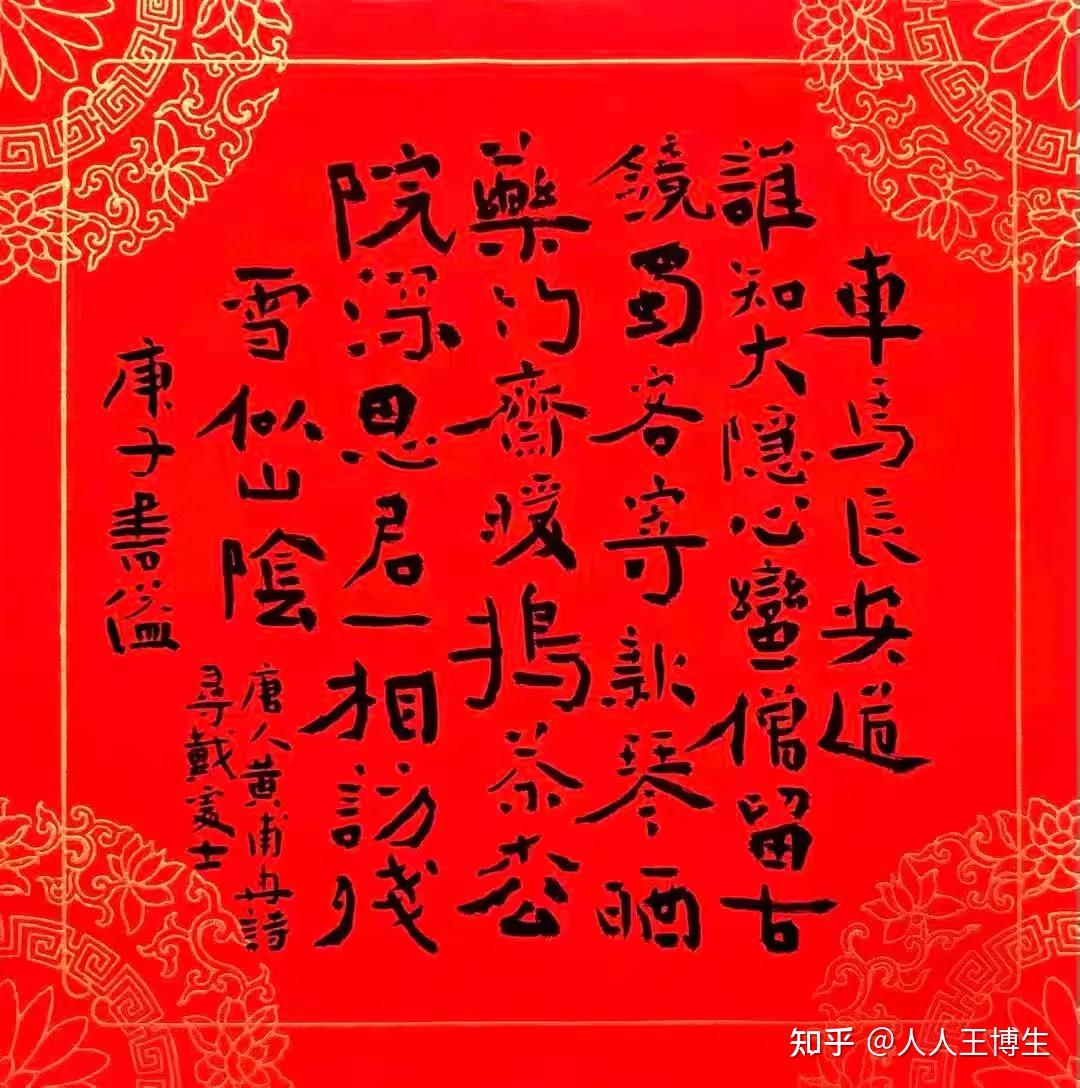 車馬長安道
誰知大隱心蠻僧留古
鏡蜀客寄新琴晒
藥竹齋暖搗茶枀
院深思君一相訪殘
雪似山陰
唐人黃甫冉詩
尋戴處士
庚子書
知乎 @人人王博生